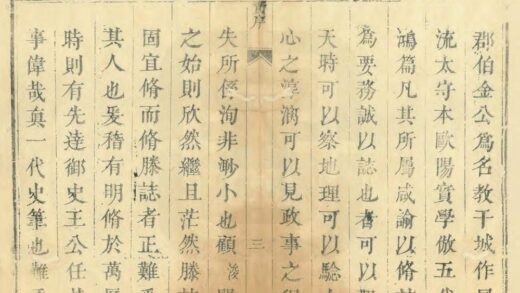 郡伯金公為名教干城作風
流太守本歐陽實學倣五代
鴻篇凡其所屬咸諭以脩誌
為要務誠以誌也者可以
天時可以察地理可以騐
心之淳漓可以見政事之得
三
失所係洵非渺小也顧
之始則欣然繼且茫然滕
固宜脩而脩滕誌者正難
其人也爰稽有明脩於萬曆
時則有先達御史王公任
事偉哉真一代史筆也